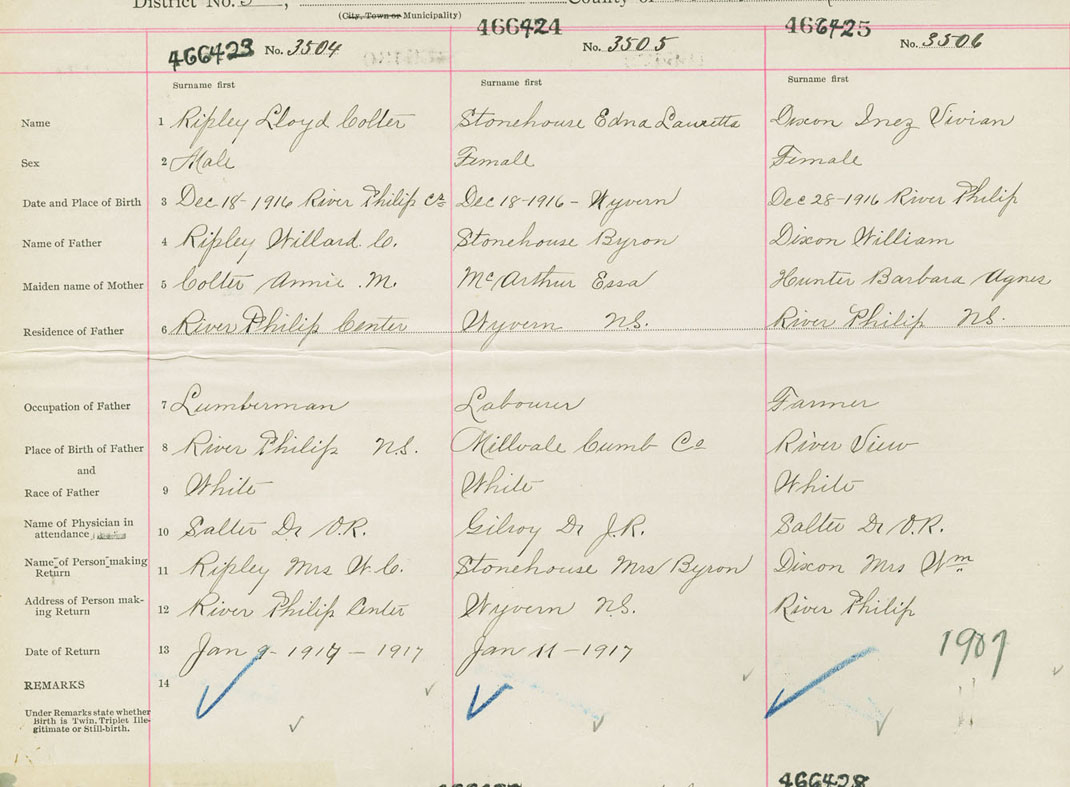 District No. 5,
(City, Town or Municipality)
County of
466423 No. 3504
466424 No. 3505
466425 No. 3506
Surname first Surname first Surname first
Name 1 Ripley Lloyd Colter Stonehouse Edna Lauretta Dixon Inez Vivian
Sex 2 Male Female Female
Date and Place of Birth 3 Dec 18-1916 River Philip Ce Dec 18-1916 - Wyvern Dec 28-1916 River Philip
Name of Father 4 Ripley Willard. C. Stonehouse Byron Dixon William
Maiden name of Mother 5 Colter Annie .M. McArthur Essa Hunter Barbara Agnes
Residence of Father 6 River Philip Center Wyvern N.S. River Philip N.S.
Occupation of Father 7 Lumberman Labourer Farmer
Place of Birth of Father 8 River Philip N.S. Millvale Cumb Co River View
and
Race of Father 9 White White White
Name of Physician in
attendance 10 Salter Dr O.R. Gilroy Dr J.R. Salter Dr O.R.
Name of Person making
Return 11 Ripley Mrs W.C. Stonehouse Mrs Byron Dixon Mrs Wm
Address of Person mak-
ing Return 12 River Philip Center Wyvern N.S. River Philip
Date of Return 13 Jan 9-1917 - 1917 Jan 11-1917 1907
REMARKS 14
Under Remarks state whether
Birth is Twin, Triplet Ille-
gitimate or Still-birth.
466428